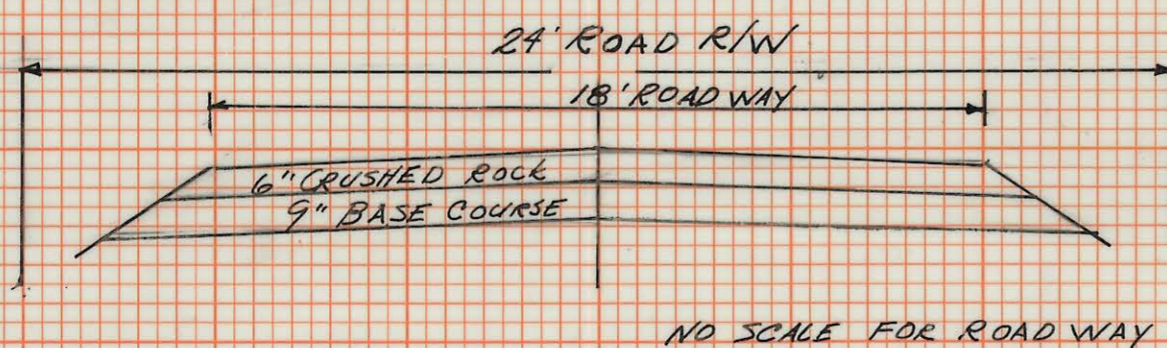 24' ROAD R/W
18' ROADWAY
6" CRUSHED ROCK
9" BASE COURSE
NO SCALE FOR ROADWAY